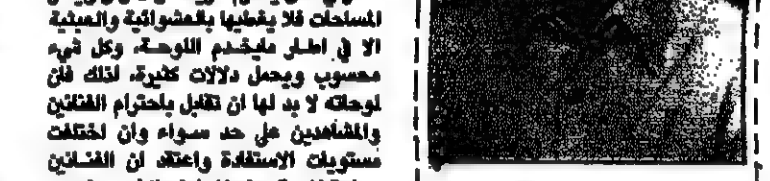 المساحات فلا يغطيها بالعشوائية والعبثية
الا في اطار مايخدم اللوحة، وكل شيء
محسوب ويحمل دلالات كثيرة، لذلك فان
لوحاته لا بد لها ان تقابل باحترام الفنانين
والمشاهدين على حد سواء وان اختلفت
مستويات الاستفادة واعتقد ان الفنانين